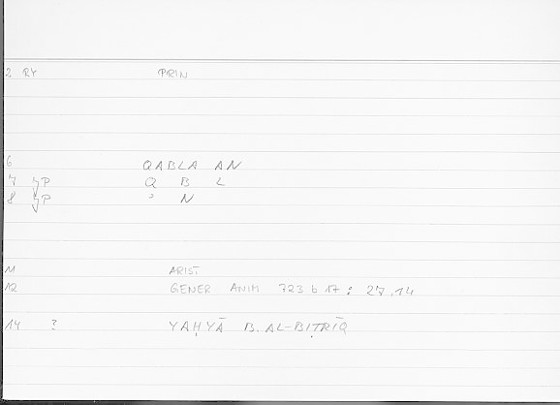 2 RY PRIN
6 QABLA AN
7 ϟP Q B L
8 ϟP ʾ N
11 ARIST
12 GENER ANIM 723 b 17 : 27.14
14 ? YAḤYĀ B. AL-BIṬRĪQ